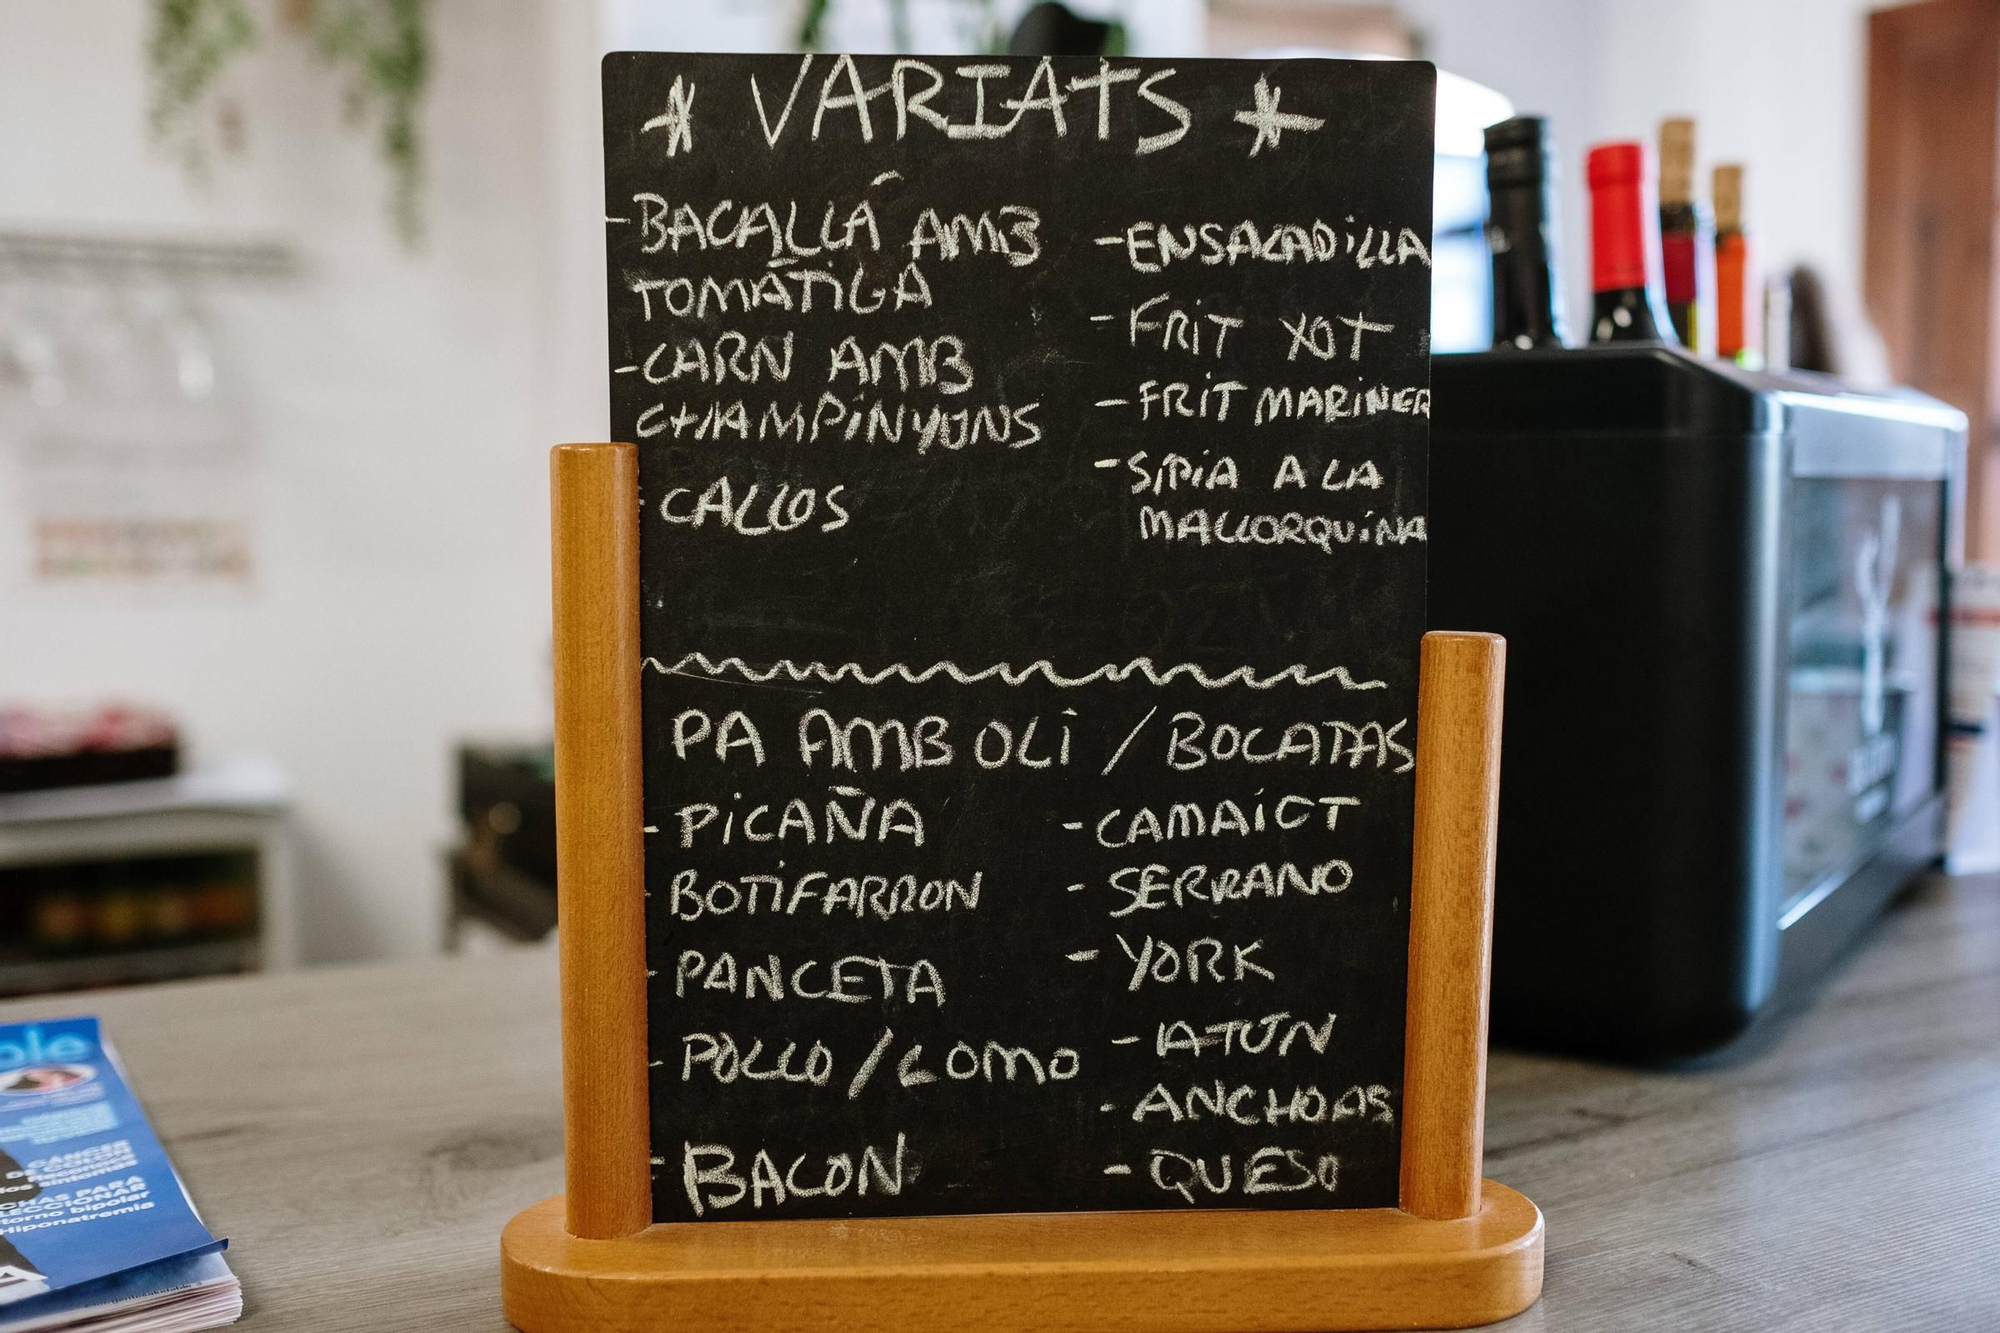 * VARIATS *
-BACALLÁ AMB
TOMÁTIGA
-CARN AMB
CHAMPINYONS
-CALLOS
-ENSALADILLA
-FRIT XOT
-FRIT MARINER
-SIPIA A LA
MALLORQUINA
PA AMB OLI / BOCATAS
-PICAÑA
-BOTIFARRON
-PANCETA
-POLLO/LOMO
-BACON
-CAMAIOT
-SERRANO
-YORK
-ATÚN
-ANCHOAS
-QUESO
CÁNCER
DE COLON
PARA
torno bipolar
Hiponatremia